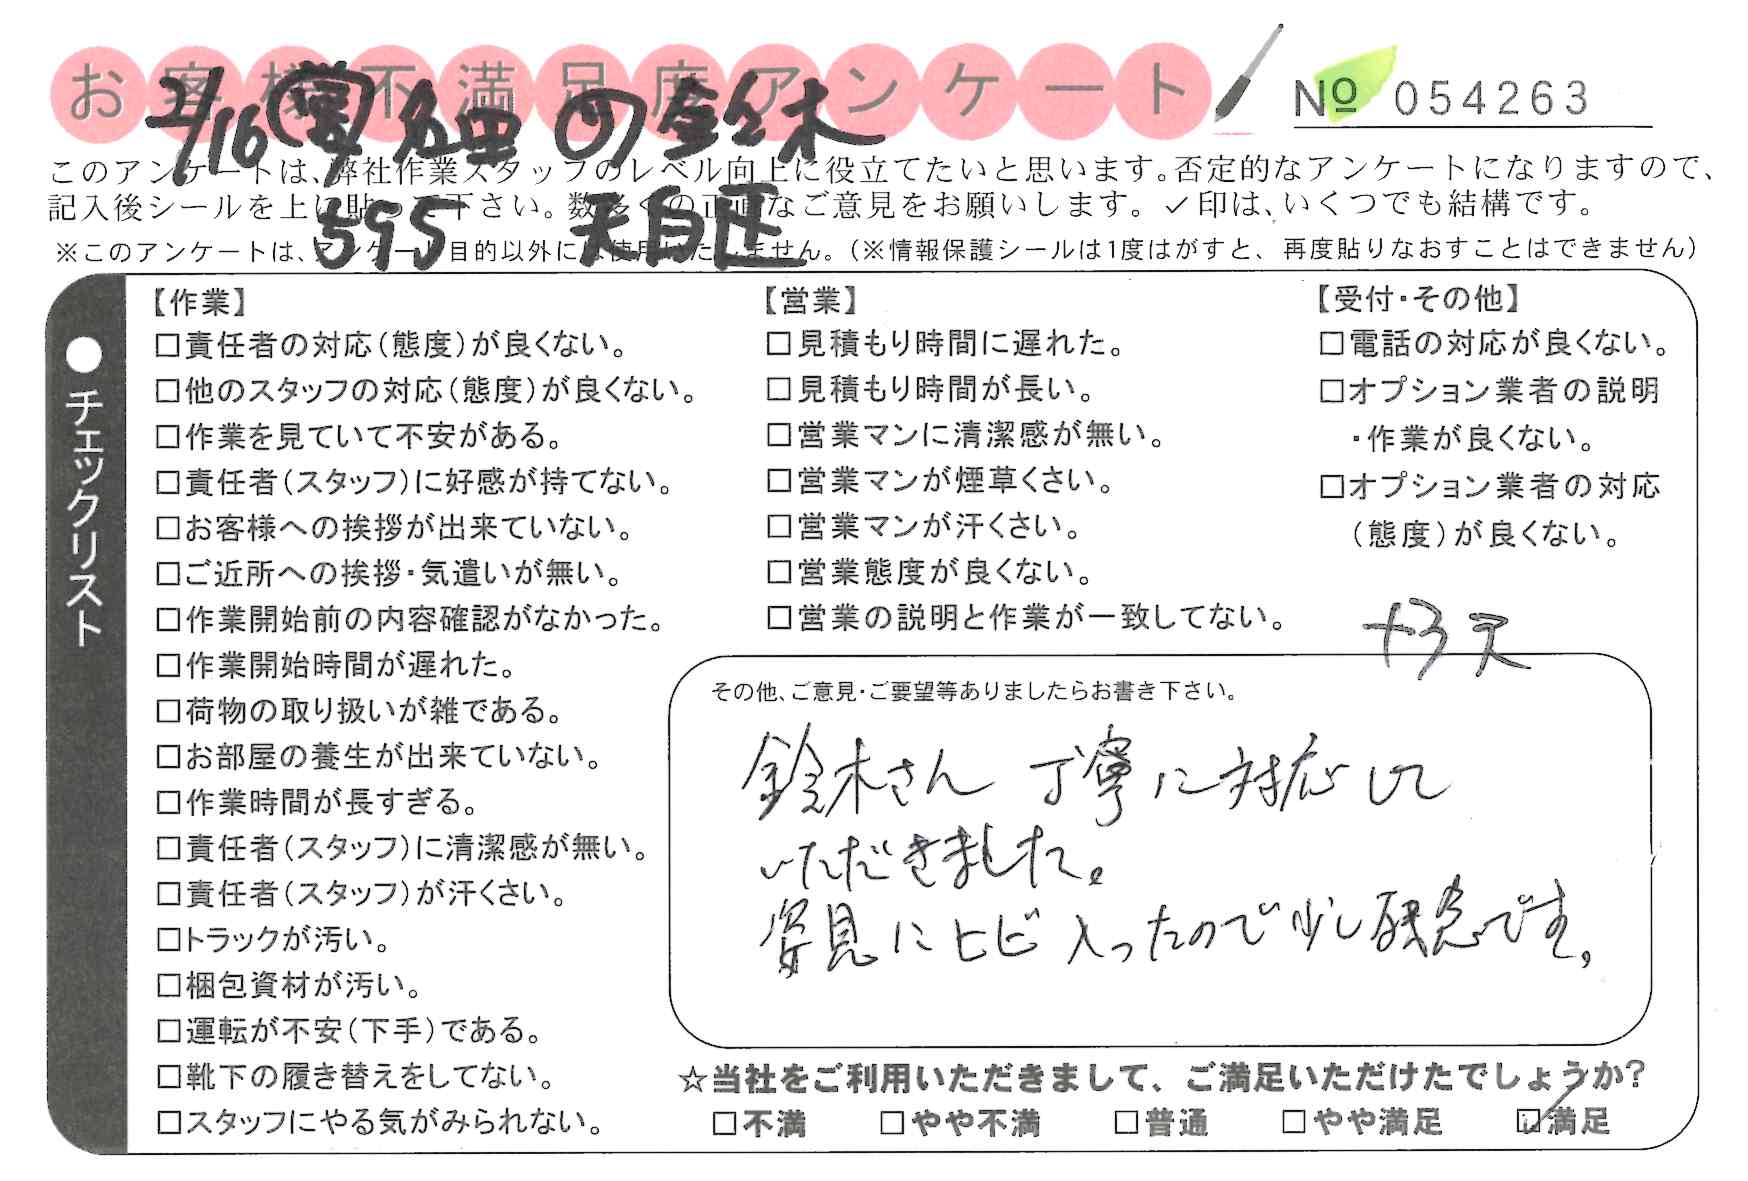 お客様不満足度アンケート
№ 054263
2/16 名 の 鈴木
このアンケートは、弊社作業スタッフのレベル向上に役立てたいと思います。否定的なアンケートになりますので、
記入後シールを上に貼って下さい。数多くの正直なご意見をお願いします。✓印は、いくつでも結構です。
595 天白区
※このアンケートは、アンケート目的以外には使用いたしません。(※情報保護シールは1度はがすと、再度貼りなおすことはできません)
●チェックリスト
【作業】
□責任者の対応(態度)が良くない。
□他のスタッフの対応(態度)が良くない。
□作業を見ていて不安がある。
□責任者(スタッフ)に好感が持てない。
□お客様への挨拶が出来ていない。
□ご近所への挨拶・気遣いが無い。
□作業開始前の内容確認がなかった。
□作業開始時間が遅れた。
□荷物の取り扱いが雑である。
□お部屋の養生が出来ていない。
□作業時間が長すぎる。
□責任者(スタッフ)に清潔感が無い。
□責任者(スタッフ)が汗くさい。
□トラックが汚い。
□梱包資材が汚い。
□運転が不安(下手)である。
□靴下の履き替えをしてない。
□スタッフにやる気がみられない。
【営業】
□見積もり時間に遅れた。
□見積もり時間が長い。
□営業マンに清潔感が無い。
□営業マンが煙草くさい。
□営業マンが汗くさい。
□営業態度が良くない。
□営業の説明と作業が一致してない。
【受付・その他】
□電話の対応が良くない。
□オプション業者の説明
・作業が良くない。
□オプション業者の対応
(態度)が良くない。
+3天
その他、ご意見・ご要望等ありましたらお書き下さい。
鈴木さん 丁寧に対応して
いただきました。
姿見にヒビ入ったので少し残念です。
☆当社をご利用いただきまして、ご満足いただけたでしょうか?
□不満 □やや不満 □普通 □やや満足 ☑満足